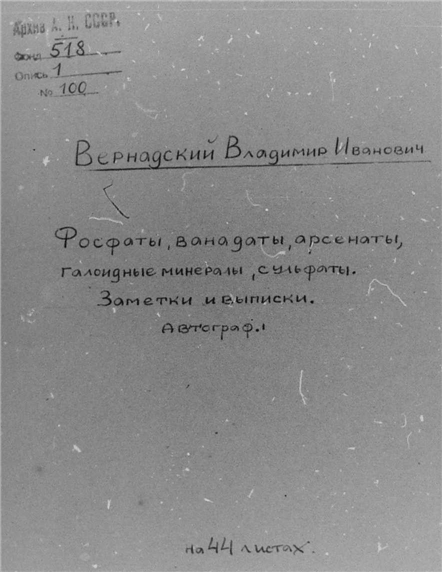 Архив А. Н. СССР.
Фонд 518
Опись 1
№ 100
Вернадский Владимир Иванович
Фосфаты, ванадаты, арсенаты,
галоидные минералы, сульфаты.
Заметки и выписки.
Автограф.
на 44 листах.